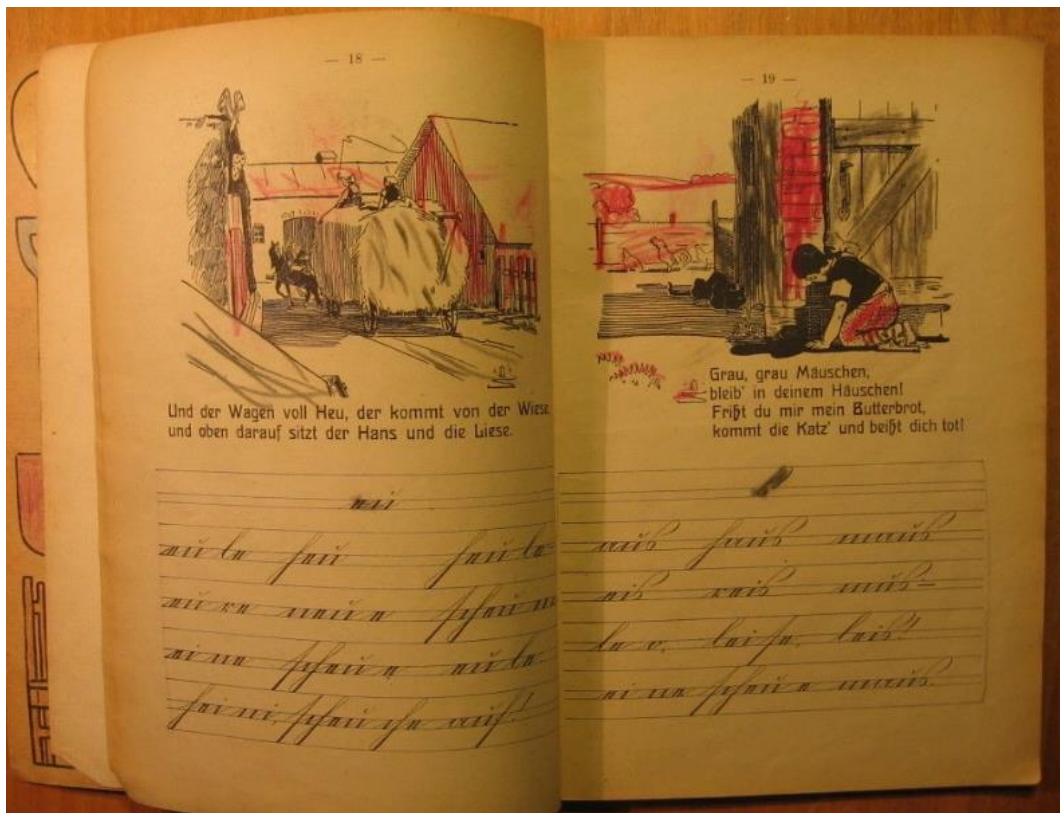 — 18 —
Und der Wagen voll Heu, der kommt von der Wiese,
und oben darauf sitzt der Hans und die Liese.
eu
eu le heu heu le
eu re neu e scheune
ei ne scheu e eu le
hei ni, scheu che auf!
— 19 —
Grau, grau Mäuschen,
bleib' in deinem Häuschen!
Frißt du mir mein Butterbrot,
kommt die Katz' und beißt dich tot!
s
aus haus maus
eis reis mäus-
le o, leise, leis!
ei ne scheu e maus.